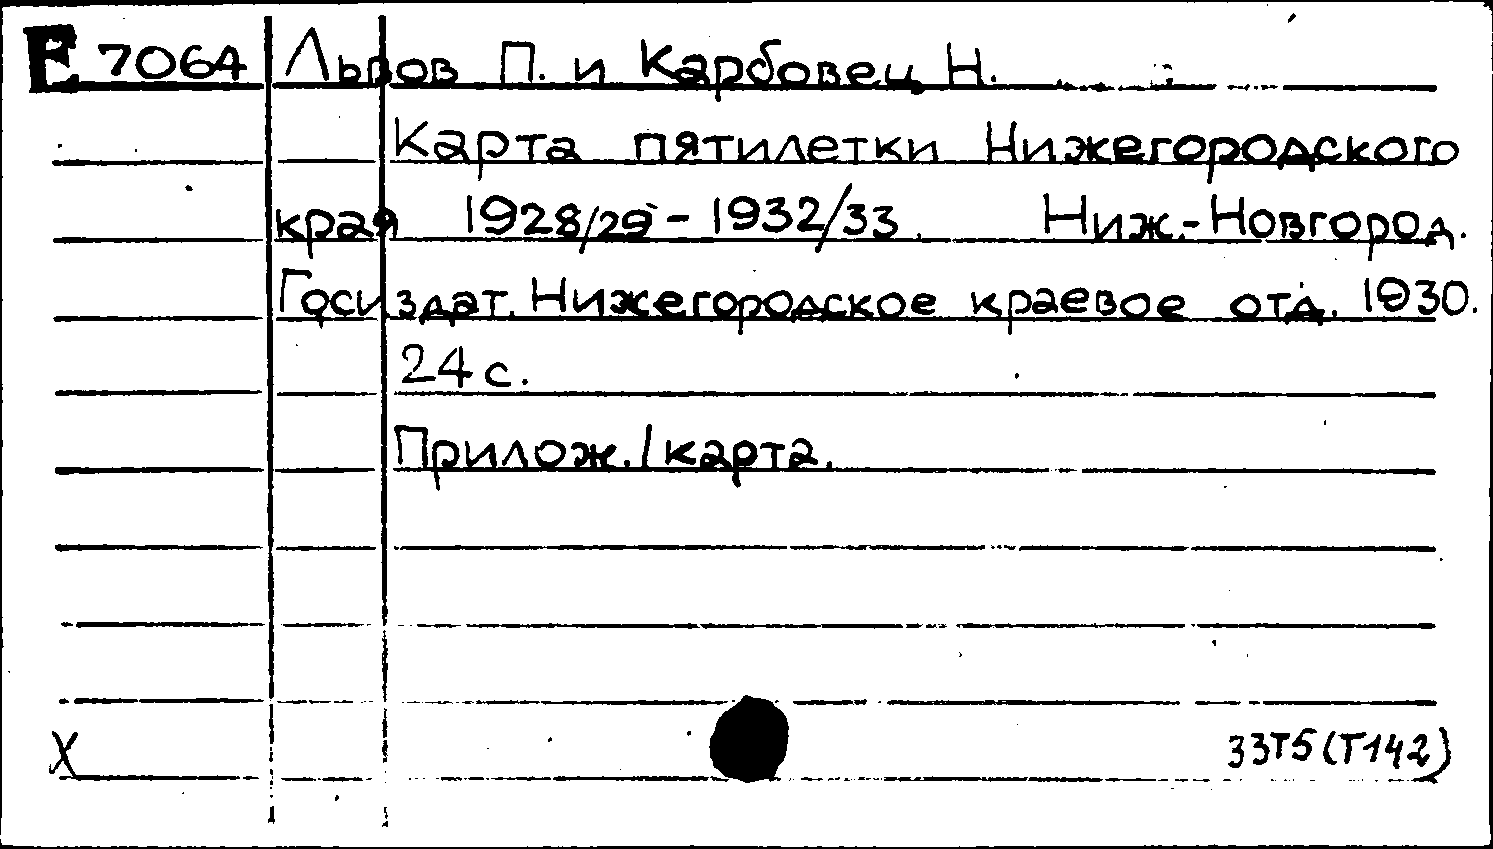 Е 7064 Львов П. и Карбовец Н.
Карта пятилетки Нижегородского
края 1928/29 - 1932/33. Ниж.-Новгород.
Госиздат. Нижегородское краевое отд. 1930.
24 с.
Прилож. 1 карта.
X 33Т5(Т142)